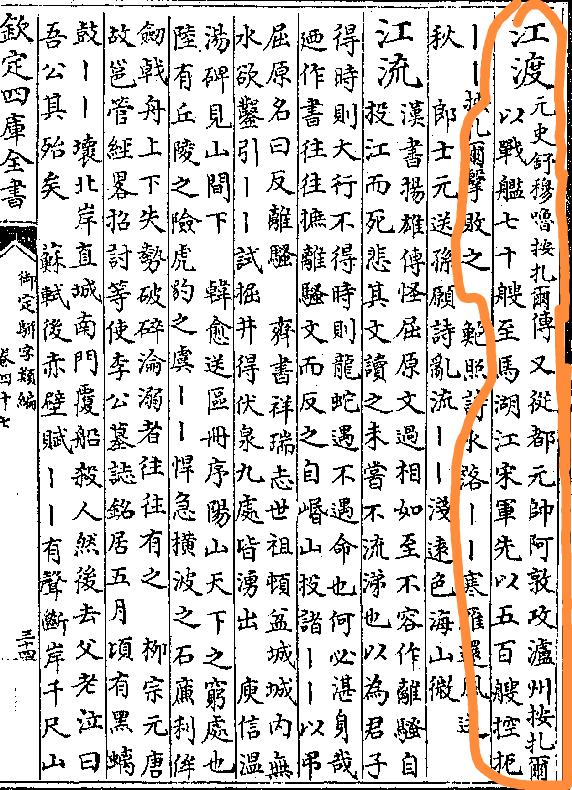 江渡 元史舒穆嚕按扎爾傳又從都元帥阿敦攻瀘州按扎爾
以戰艦七十艘至馬湖江宋軍先以五百艘控扼
丨丨按扎爾擊敗之 鮑照詩水落丨丨寒雁還風送
秋 郎士元送孫願詩亂流丨丨淺遠色海山微
江流 漢書揚雄傳怪屈原文過相如至不容作離騷自
投江而死悲其文讀之未嘗不流涕也以為君子
得時則大行不得時則龍蛇遇不遇命也何必湛身哉
迺作書往往摭離騷文而反之自崏山投諸丨丨以弔
屈原名曰反離騷 齊書祥瑞志世祖頓盆城城内無
水欲鑿引丨丨試掘井得伏泉九處皆湧出 庾信温
湯碑見山間下 韓愈送區冊序陽山天下之窮處也
陸有丘陵之險虎豹之虞丨丨悍急橫波之石廉利侔
劒戟舟上下失勢破碎淪溺者往往有之 柳宗元唐
故邕管經畧招討等使李公墓誌銘居五月項有黑螭
鼓丨丨壞北岸直城南門覆船殺人然後去父老泣曰
吾公其殆矣 蘇軾後赤壁賦丨丨有聲斷岸千尺山
欽定四庫全書
御定駢字類編
卷四十七
三十四